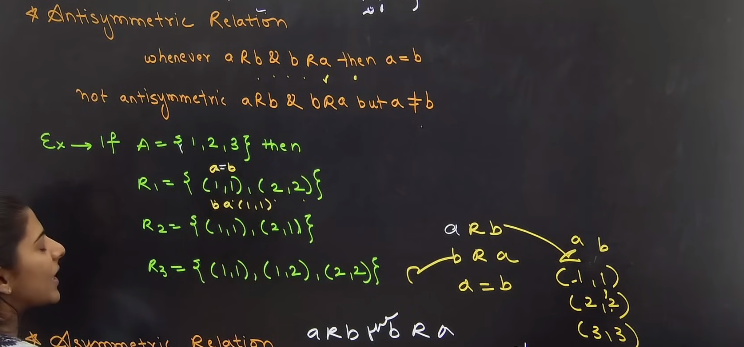 * Antisymmetric Relation
whenever a R b & b R a then a = b
not antisymmetric a R b & b R a but a ≠ b
Ex → If A = {1, 2, 3} then
a=b
R₁ = { (1,1), (2,2)}
b a (1,1)
R₂ = { (1,1), (2,1)}
R₃ = { (1,1), (1,2), (2,2)}
a R b
b R a
a = b
a b
(1,1)
(2,2)
(3,3)
* Asymmetric Relation
a R b b R a